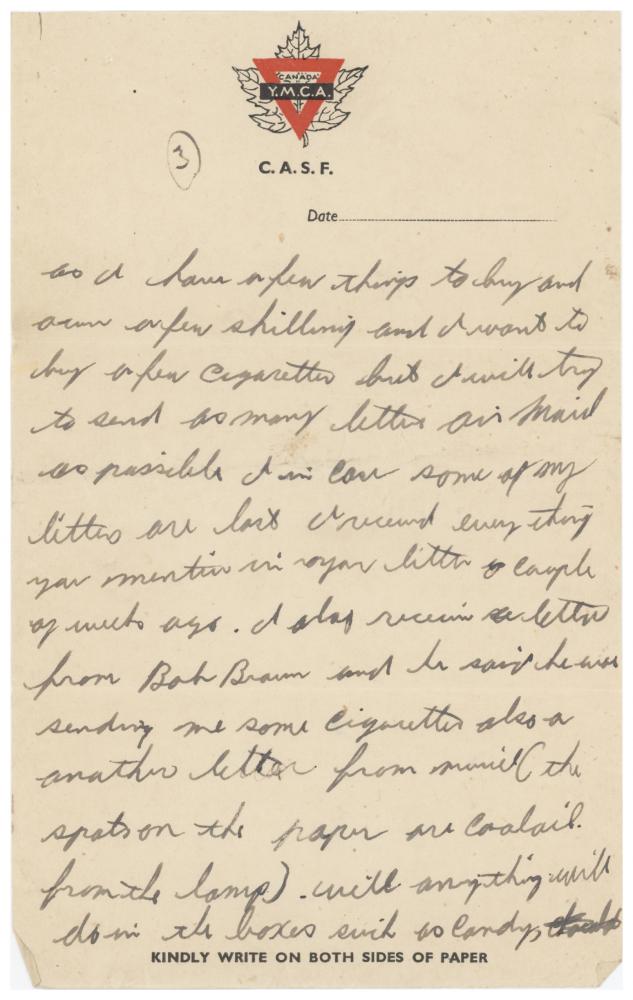 CANADA
Y.M.C.A.
3
C. A. S. F.
Date
as I have a few things to buy and
a few shilling and I want to
buy a few cigarettes but I will try
to send as many letter air Maid
as possible I in case some of my
letters are lost I received everything
you mention in your letter a couple
of weeks ago. I also receive a letter
from Bob Braun and he said he was
sending me some cigarettes also a
another letter from muriel (the
spots on the paper are coaloil
from the lamp). well anything will
do in the boxes such as candy,
KINDLY WRITE ON BOTH SIDES OF PAPER